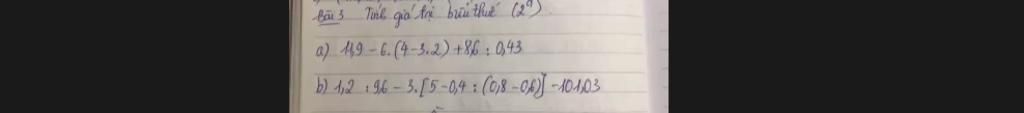 Bài 3 Tính giá trị biểu thức (2đ)
a) 11,9 - 6.(4-3.2) + 8,6 : 0,43
b) 1,2 : 9,6 - 3.[5 - 0,4 : (0,8 - 0,6)] - 101,03